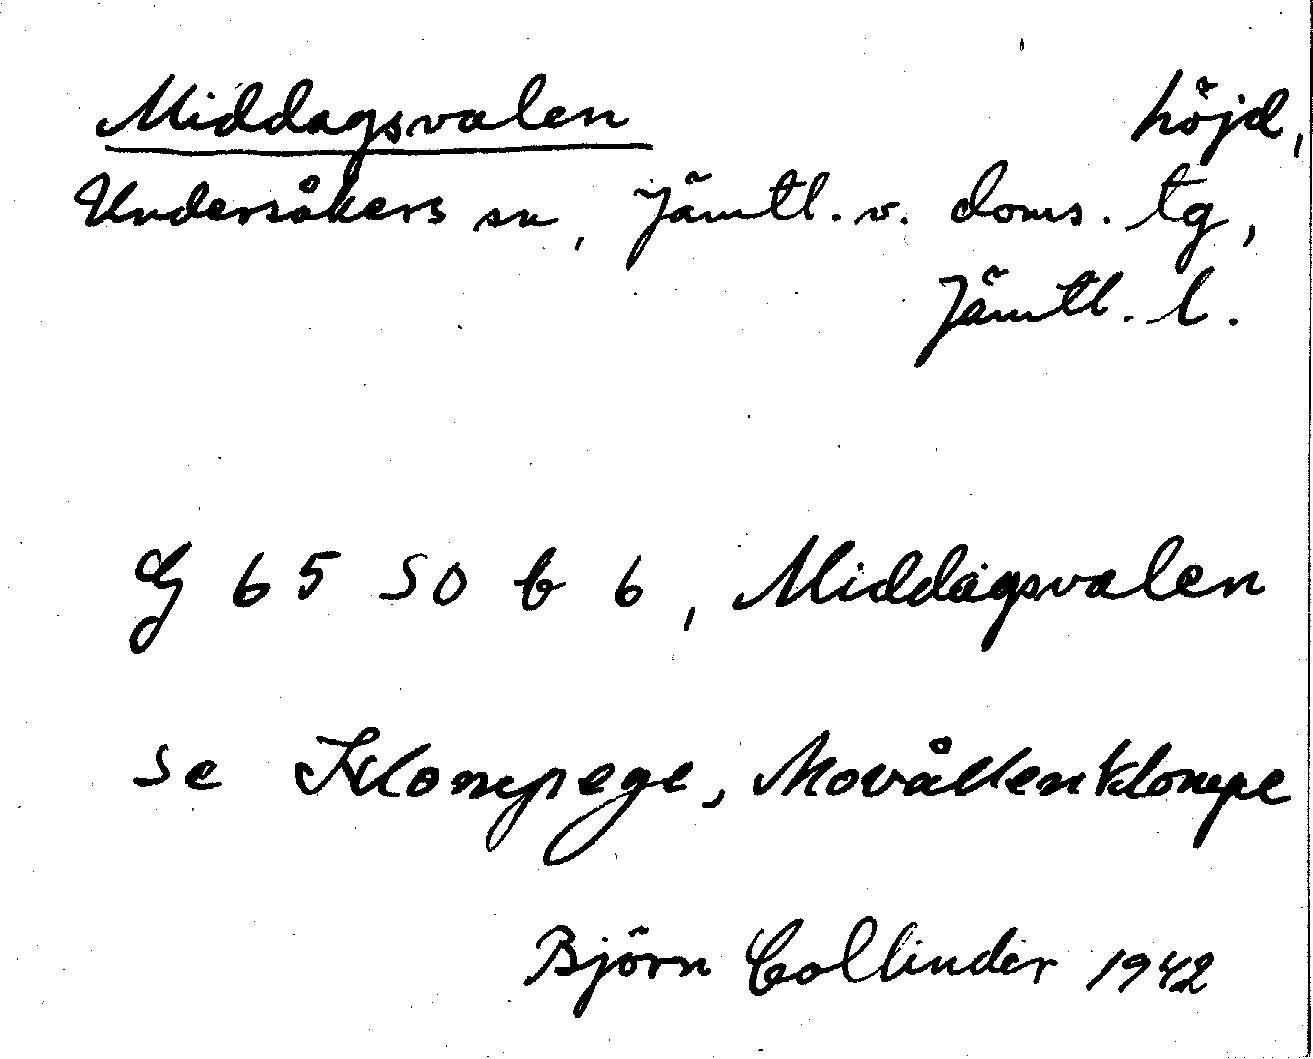 Middagsvalen höjd,
Undersåkers sn, Jämtl. v. doms. tg,
Jämtl. l.
G 65 50 b 6, Middagsvalen
se Klompege, Movållenklompe
Björn Collinder 1942